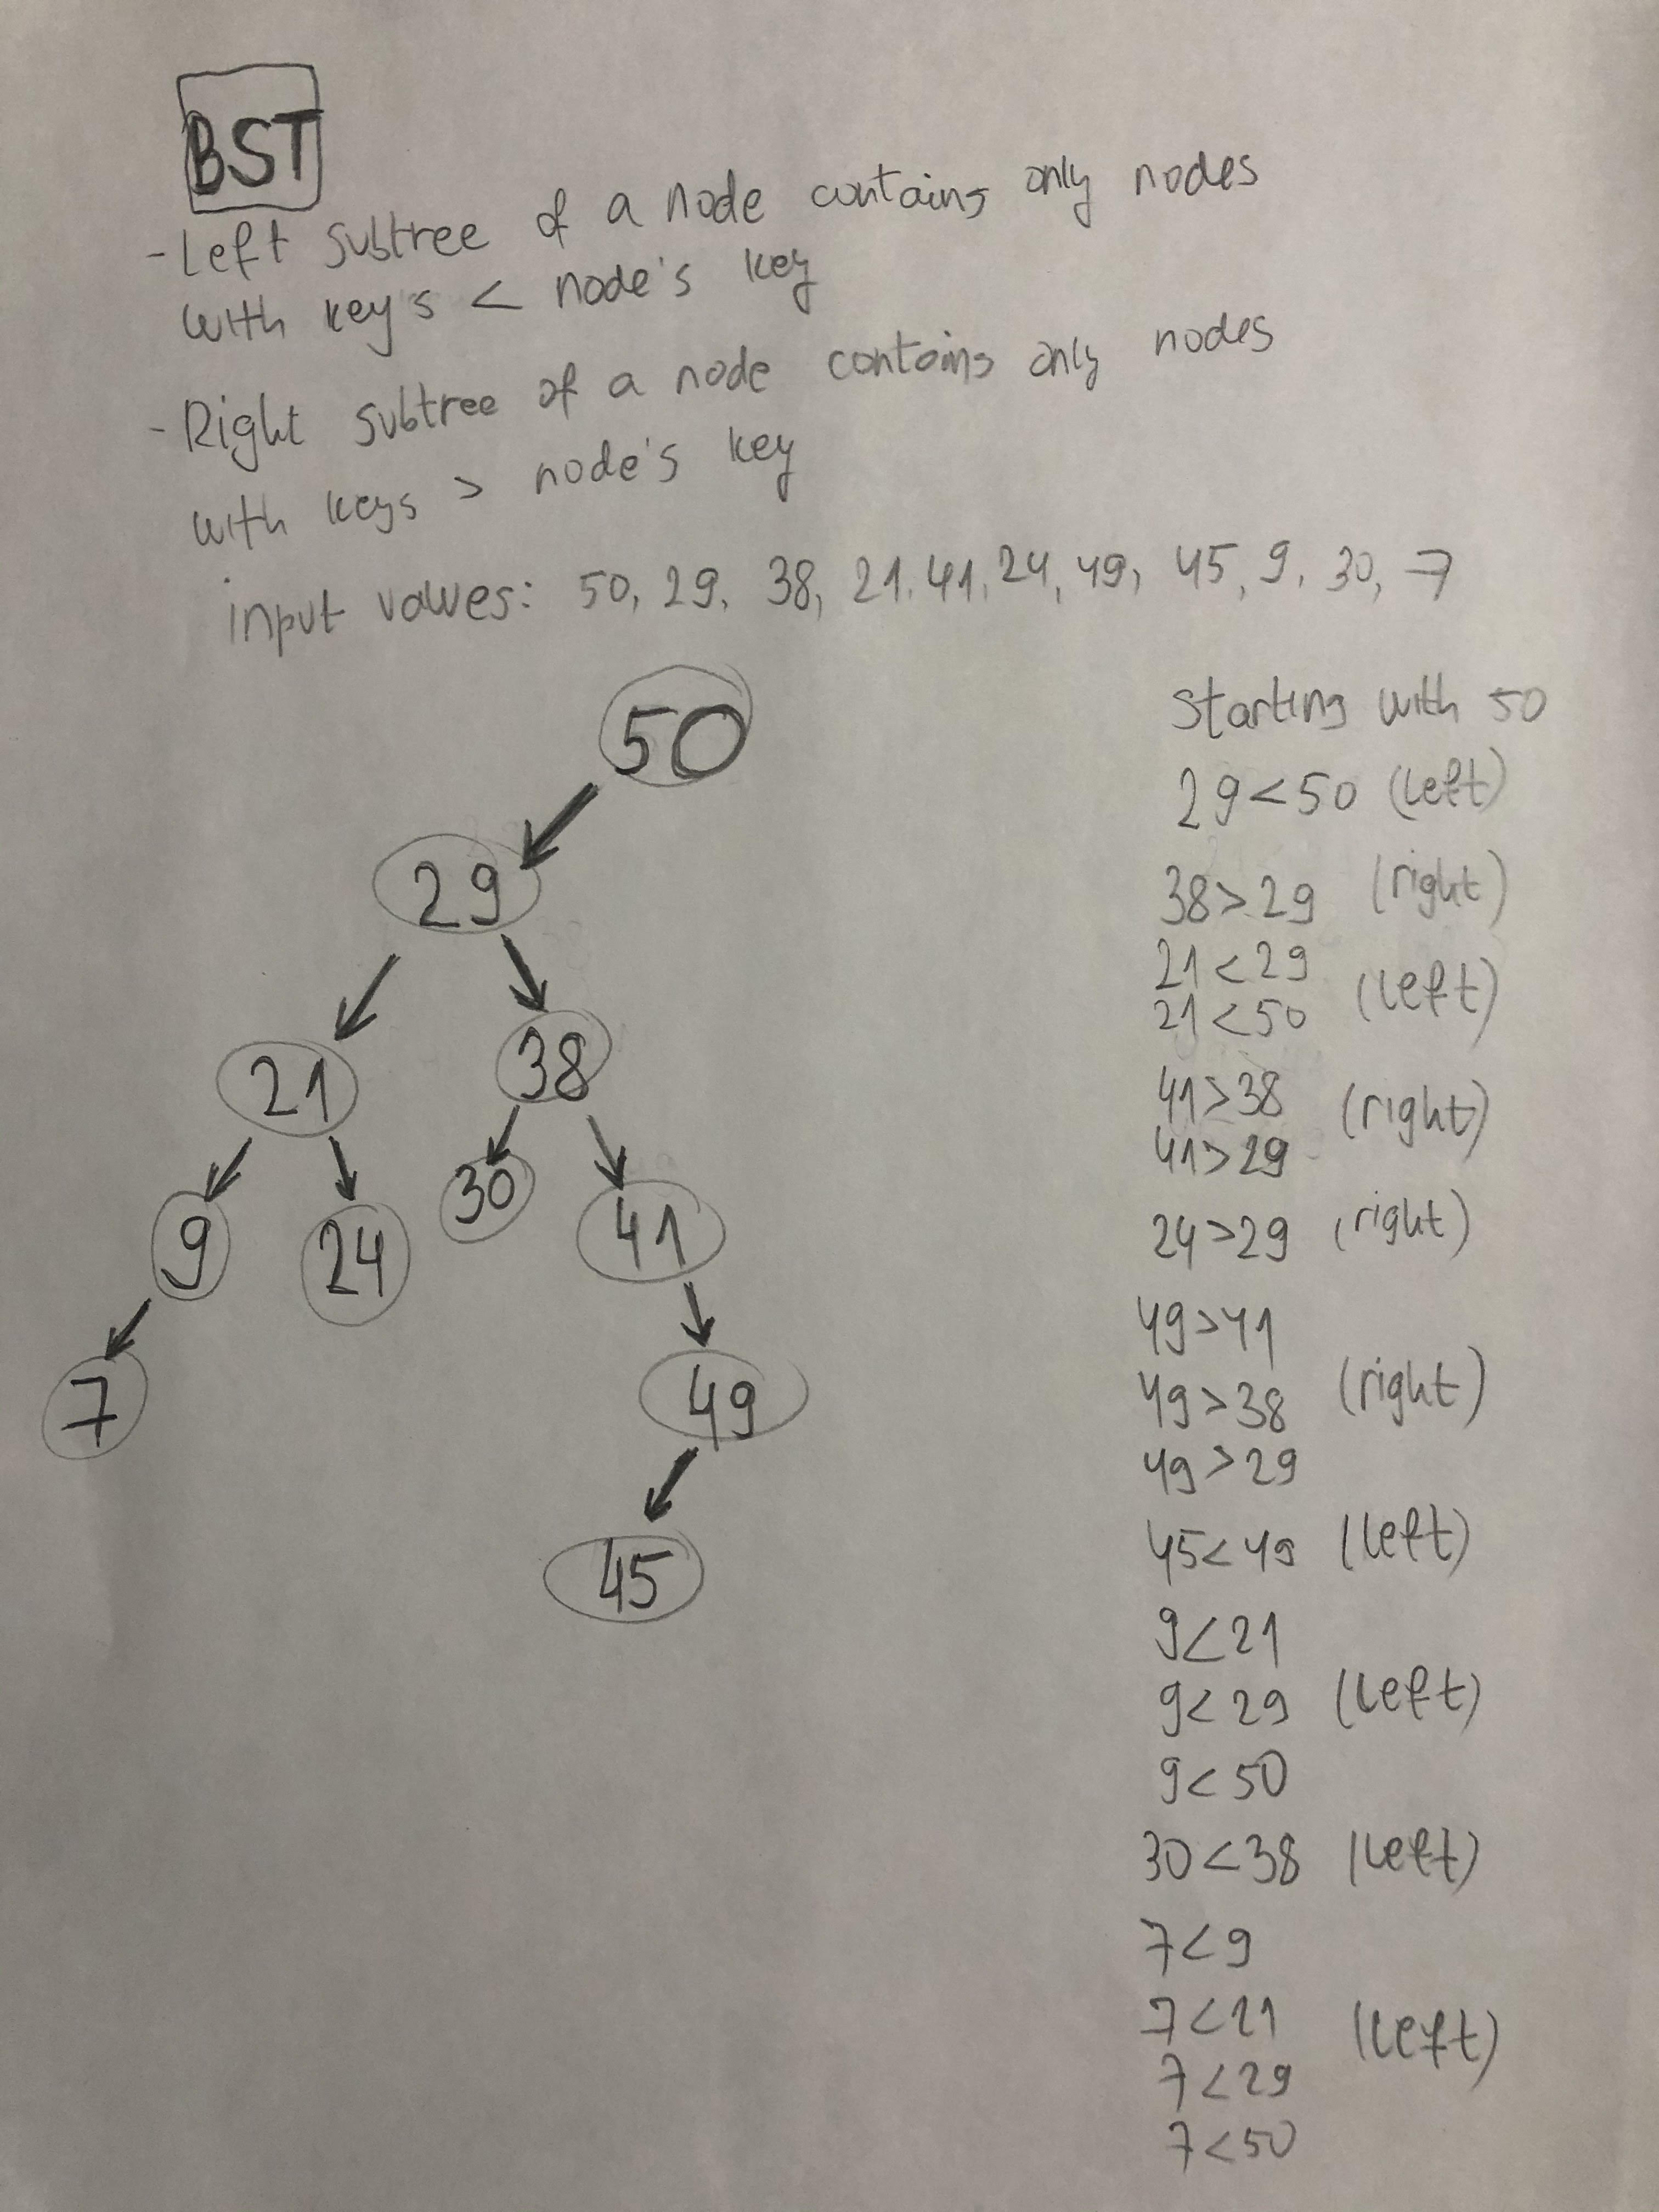 BST
- Left subtree of a node contains only nodes
with keys < node's key
- Right subtree of a node contains only nodes
with keys > node's key
input values: 50, 29, 38, 21, 41, 24, 49, 45, 9, 30, 7
50
29
21
38
9
24
30
41
7
49
45
starting with 50
29<50 (left)
38>29 (right)
21<29
21<50 (left)
41>38 (right)
41>29
24>29 (right)
49>41
49>38 (right)
49>29
45<49 (left)
9<21
9<29 (left)
9<50
30<38 (left)
7<9
7<21 (left)
7<29
7<50